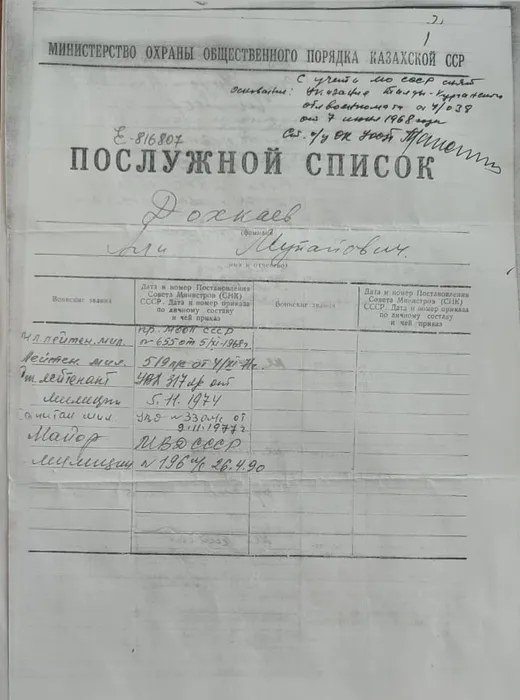 2.
1
МИНИСТЕРСТВО ОХРАНЫ ОБЩЕСТВЕННОГО ПОРЯДКА КАЗАХСКОЙ ССР
С учета МО СССР снят
Основание: указания Талды-Курганского
облвоенкомата № 4/038
от 7 июня 1968 года
Е-816807
ПОСЛУЖНОЙ СПИСОК
Дохкаев
(фамилия)
Али Мупаиович.
имя и отчество)
Воинские звания
Дата и номер Постановления Совета Министров (СНК) СССР. Дата и номер приказа по личному составу и чей приказ
Воинские звания
Дата и номер Постановления Совета Министров (СНК) СССР. Дата и номер приказа по личному составу и чей приказ
Мл лейтен. мил. пр. МООП СССР № 655 от 5/XI-1968г.
Лейтен. мил. 519 лс от 4/XI-71г.
Ст лейтенант УВД 317 лс от
милиции 5.11.1974
Капитан мил УВД № 330 л/с от 9.11.1977г
Майор МВД СССР
милиции № 196 л/с 26.4.90